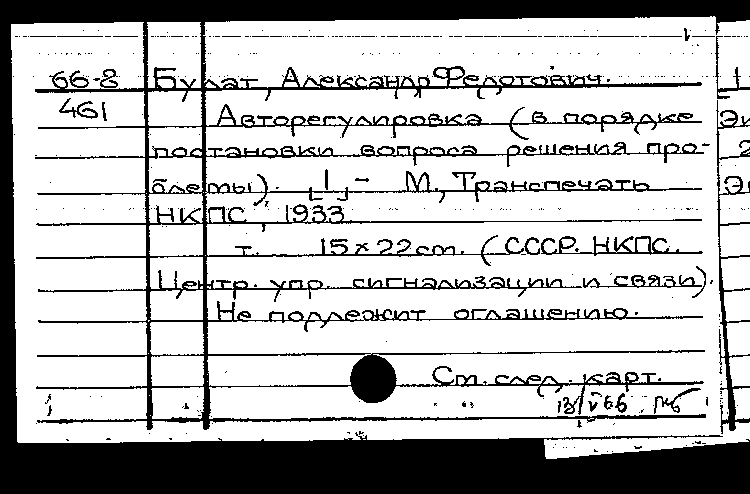 66-8 Булат, Александр Федотович.
461 Авторегулировка (в порядке
постановки вопроса решения про-
блемы). [1] - М., Транспечать
НКПС, 1933
т. 15×22cm. (СССР. НКПС.
Центр. упр. сигнализации и связи).
Не подлежит оглашению.
См. след. карт.
13/V 66